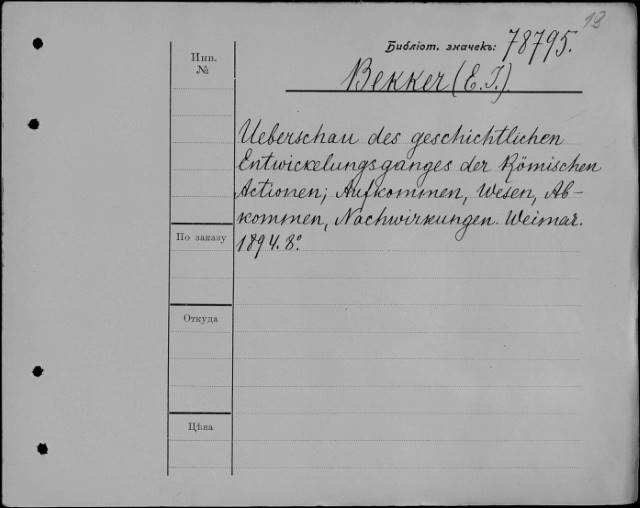 13
Библіот. значекъ: 78795.
Инв.
№
Bekker (E. I.).
Ueberschau des geschichtlichen
Entwickelungsganges der Römischen
Actionen; Aufkommen, Wesen, Ab-
kommen, Nachwirkungen. Weimar.
По заказу
1894. 8°.
Откуда
Цѣна